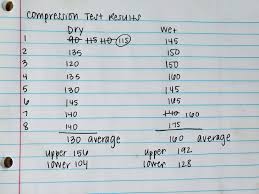 Compression Test Results
Dry Wet
1 90 115 110 115 145
2 135 150
3 120 150
4 135 160
5 130 145
6 145 165
7 140 140 160
8 140 175
130 average 160 average
upper 156 upper 192
lower 104 lower 128